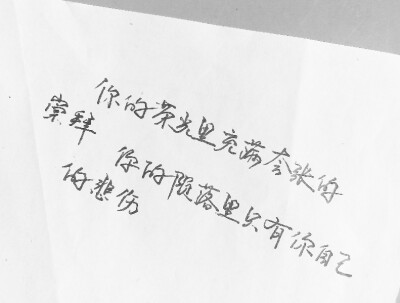 你的荣光里充满夸张的
崇拜
你的陨落里只有你自己
的悲伤